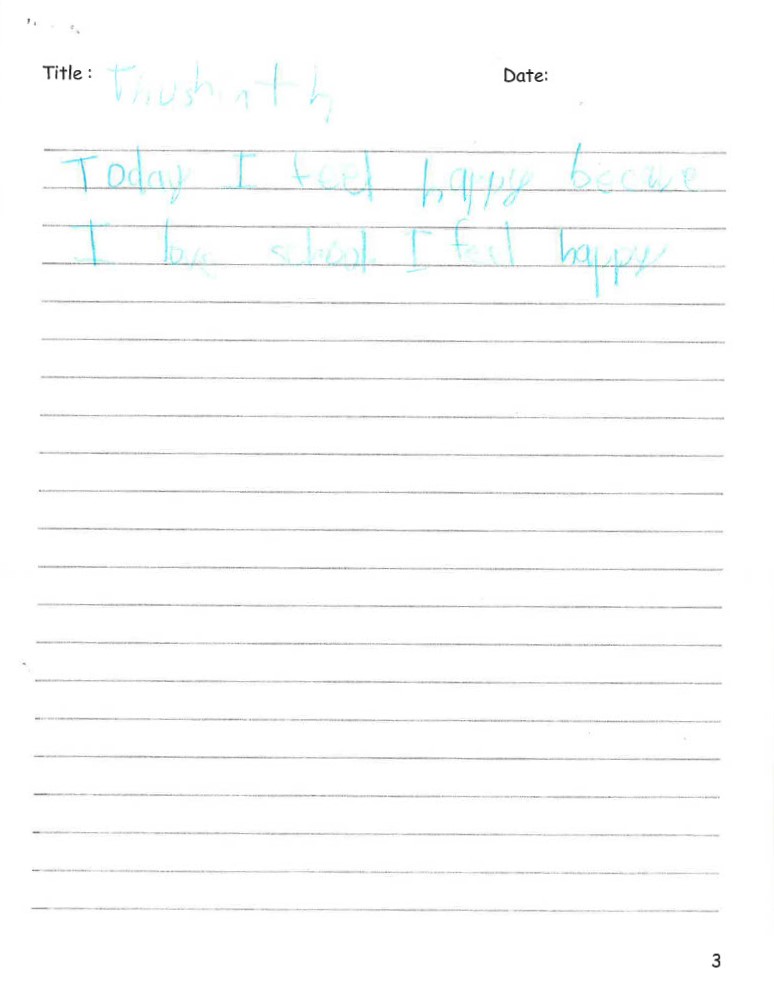 Title : Thushinth
Date:
Today I feel happy becuse
I love school I feel happy
3